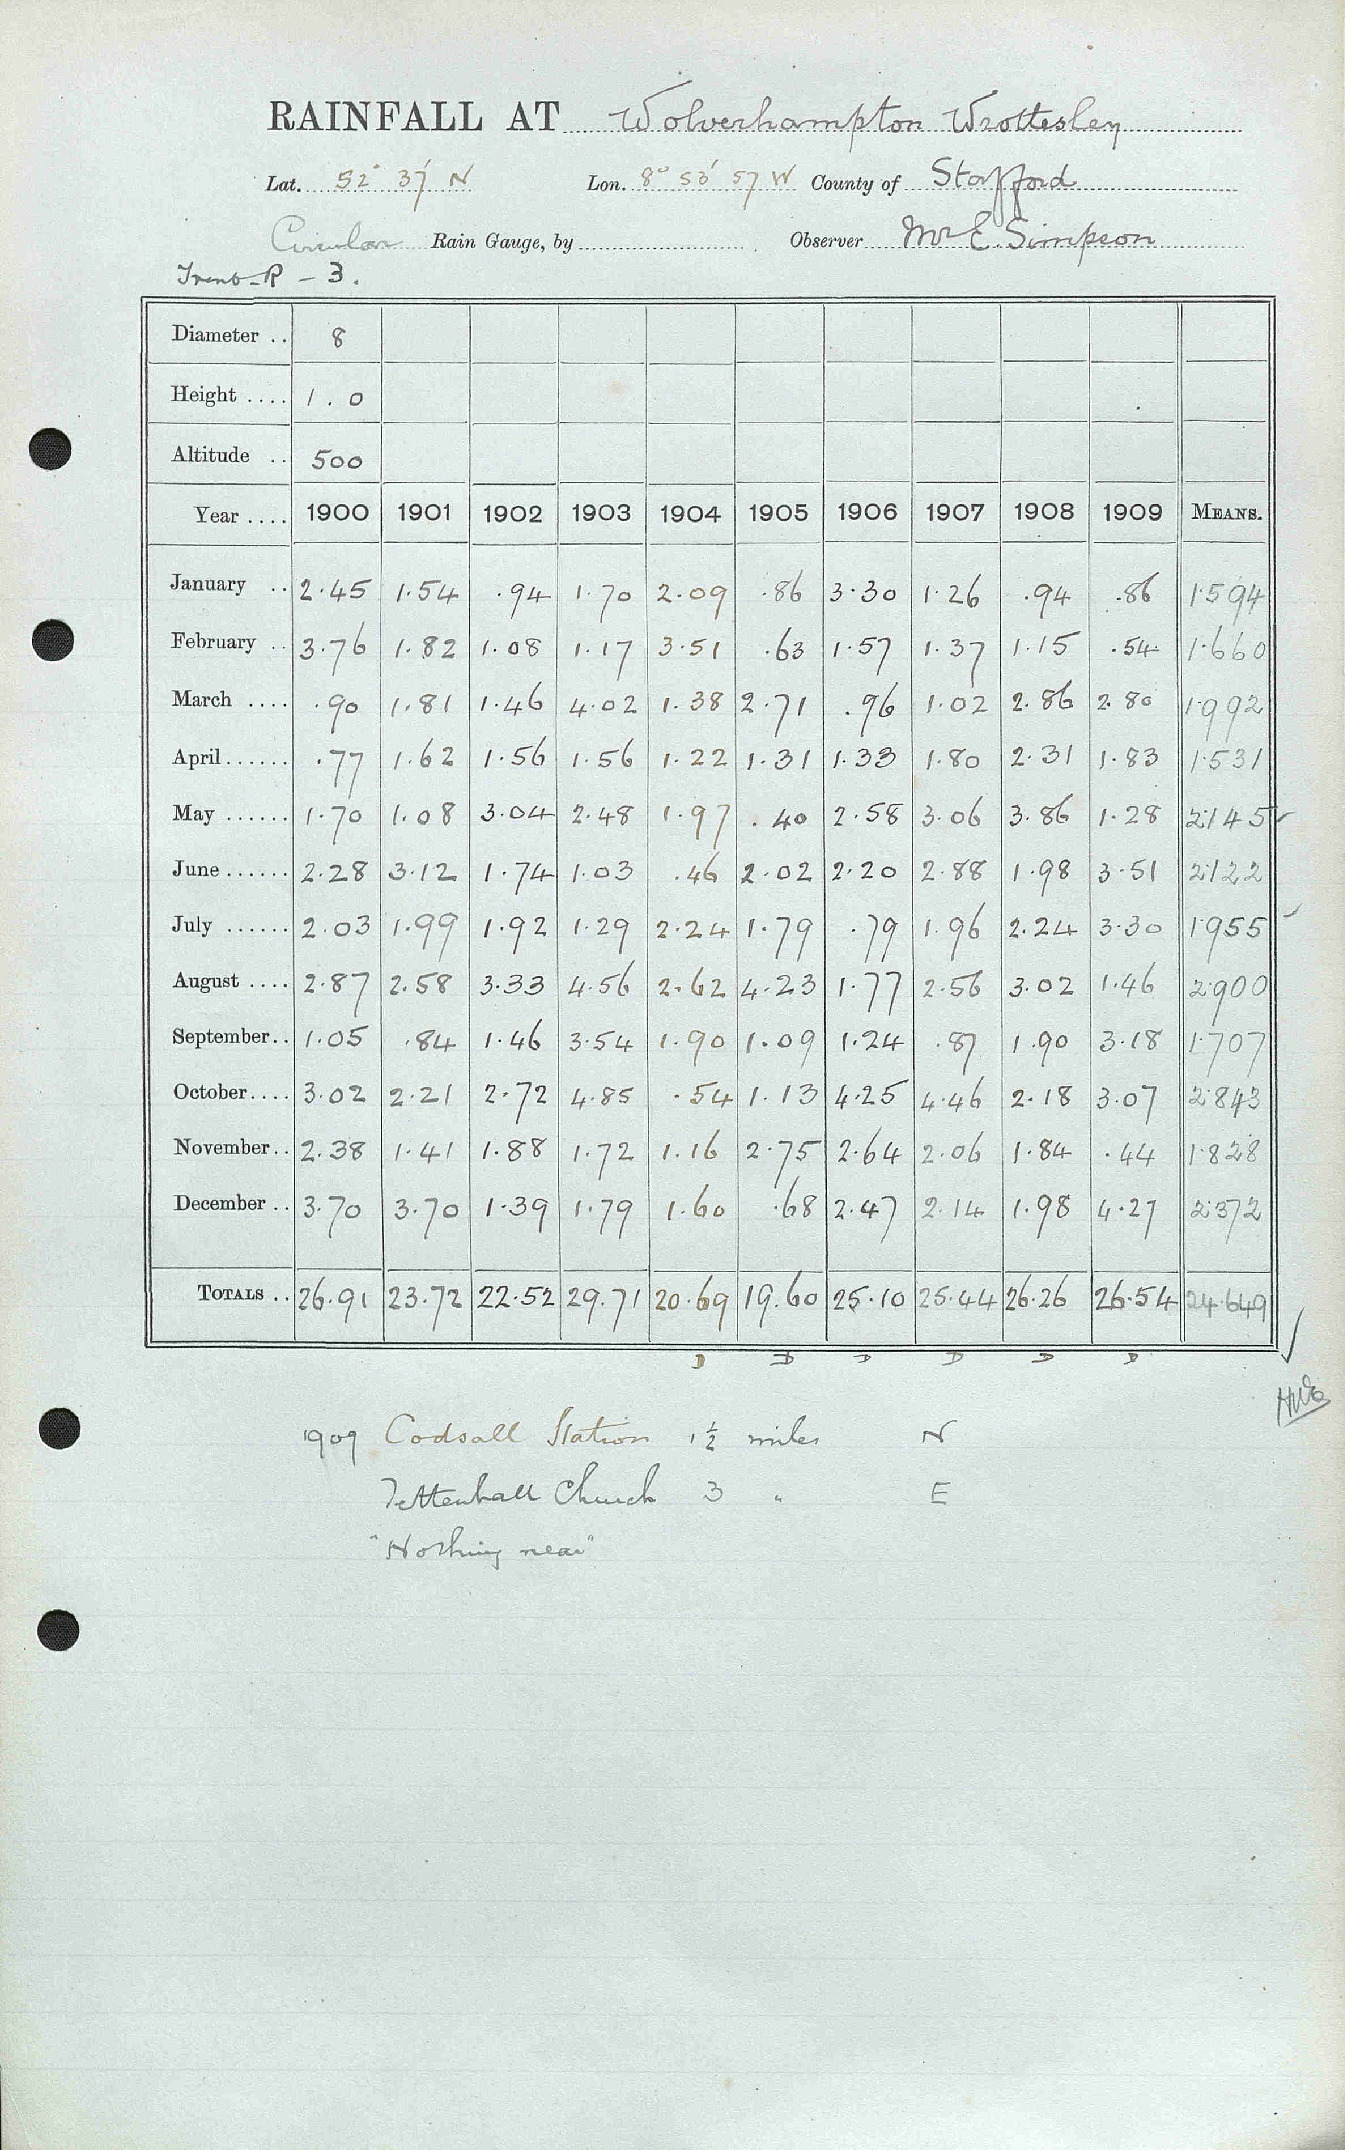 RAINFALL AT Wolverhampton Wrottesley
Lat. 52° 37' N Lon. 8° 53' 57 W County of Stafford
Circular Rain Gauge, by Observer Mr E. Simpson
Trent-R - 3.
Diameter .. 8
Height .... 1.0
Altitude .. 500
Year .... 1900 1901 1902 1903 1904 1905 1906 1907 1908 1909 MEANS.
January .. 2.45 1.54 .94 1.70 2.09 .86 3.30 1.26 .94 .86 1.594
February .. 3.76 1.82 1.08 1.17 3.51 .63 1.57 1.37 1.15 .54 1.660
March .... .90 1.81 1.46 4.02 1.38 2.71 .96 1.02 2.86 2.80 1.992
April...... .77 1.62 1.56 1.56 1.22 1.31 1.33 1.80 2.31 1.83 1.531
May ...... 1.70 1.08 3.04 2.48 1.97 .40 2.58 3.06 3.86 1.28 2.145
June...... 2.28 3.12 1.74 1.03 .46 2.02 2.20 2.88 1.98 3.51 2.122
July ...... 2.03 1.99 1.92 1.29 2.24 1.79 .79 1.96 2.24 3.30 1.955
August .... 2.87 2.58 3.33 4.56 2.62 4.23 1.77 2.56 3.02 1.46 2.900
September.. 1.05 .84 1.46 3.54 1.90 1.09 1.24 .87 1.90 3.18 1.707
October.... 3.02 2.21 2.72 4.85 .54 1.13 4.25 4.46 2.18 3.07 2.843
November.. 2.38 1.41 1.88 1.72 1.16 2.75 2.64 2.06 1.84 .44 1.828
December .. 3.70 3.70 1.39 1.79 1.60 .68 2.47 2.14 1.98 4.27 2.372
TOTALS .. 26.91 23.72 22.52 29.71 20.69 19.60 25.10 25.44 26.26 26.54 24.649
D D D D D D
1909 Codsall Station 1½ miles N
Tettenhall Church 3 " E
"Nothing near"